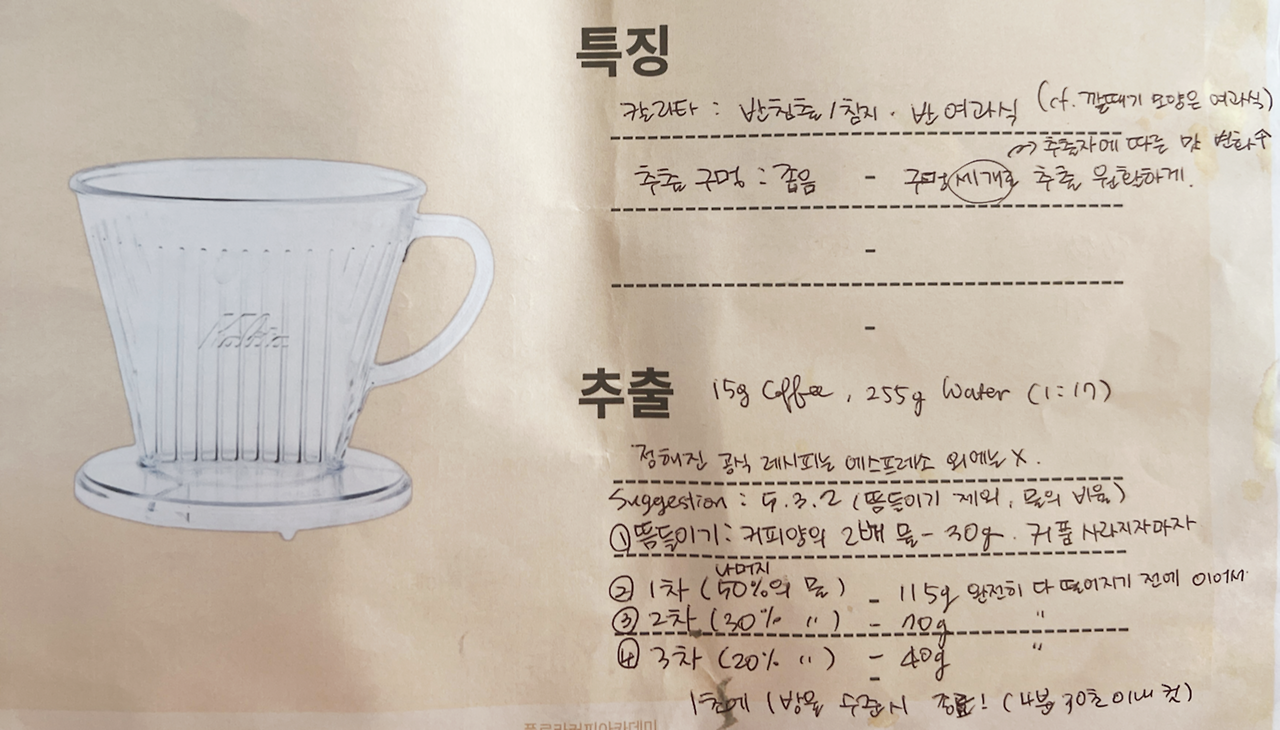 특징
칼리타 : 반침출/침지 · 반 여과식 (cf. 깔때기 모양은 여과식)
→ 추출자에 따른 맛 변화↑
추출 구멍 : 좁음 - 구멍 세개로 추출 원활하게.
-
-
Kalita
추출 15g Coffee, 255g Water (1:17)
정해진 공식 레시피는 에스프레소 외에는 X.
Suggestion : 5.3.2 (뜸들이기 제외, 물의 비율)
① 뜸들이기 : 커피양의 2배 물 - 30g. 거품 사라지자마자
나머지
② 1차 (50%의 물) - 115g 완전히 다 떨어지기 전에 이어서
③ 2차 (30%〃) - 70g 〃
④ 3차 (20%〃) - 40g 〃
-
1초에 1방울 수준시 종료! (4분 30초 이내 컷)
플로리커피아카데미